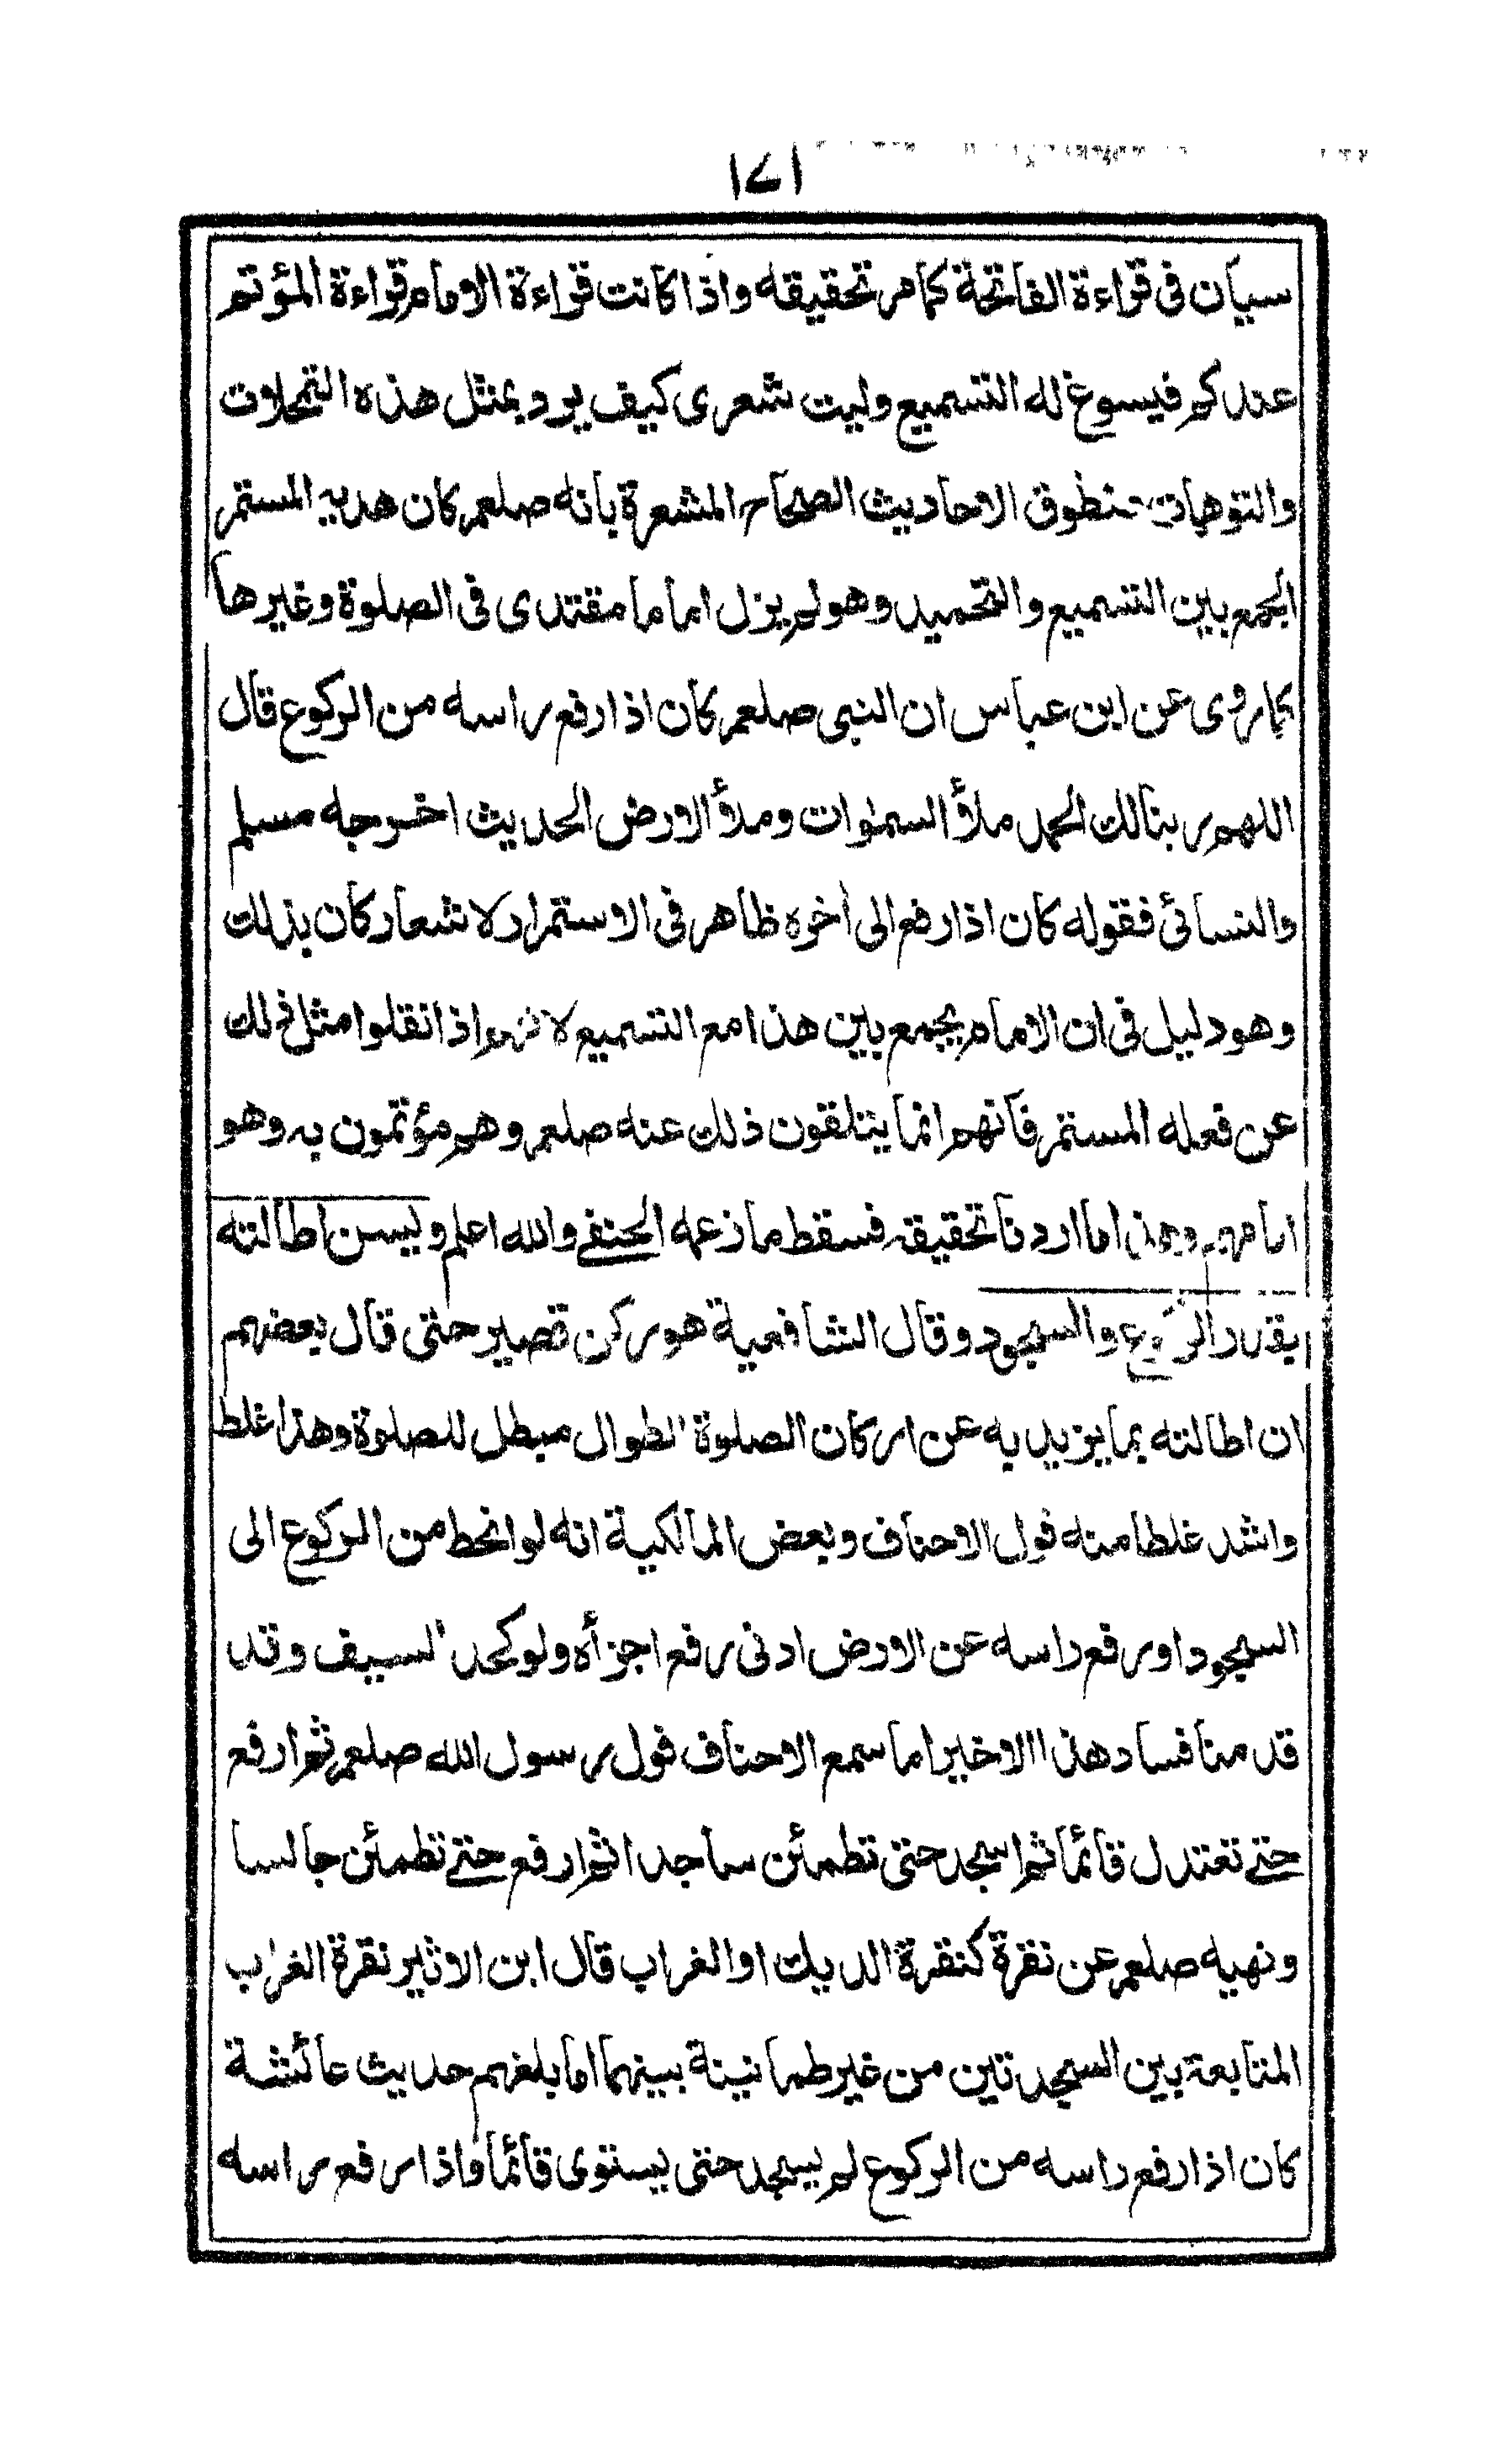 ١٧١
سيان فى قراءة الفاتحة كما مر تحقيقه واذا كانت قراءة الامام قراءة المؤتم
عندكم فيسوغ له التسميع وليت شعرى كيف يرد بمثل هذه التمحلات
والتوهمات منطوق الاحاديث الصحاح المشعرة بانه صلعم كان هديه المستمر
الجمع بين التسميع والتحميد وهو لم يزل اماما مقتدى فى الصلوة وغيرها
كما روى عن ابن عباس ان النبى صلعم كان اذا رفع راسه من الركوع قال
اللهم ربنا لك الحمد ملأ السموات وملأ الارض الحديث اخرجه مسلم
والنسائى فقوله كان اذا رفع الى اخره ظاهر فى الاستمرار لاشعار كان بذلك
وهو دليل فى ان الامام يجمع بين هذا مع التسميع لانهم اذا نقلوا مثل ذلك
عن فعله المستمر فانهم انما يتلقون ذلك عنه صلعم وهم مؤتمون به وهو
امامهم وهذا ما اردنا تحقيقه فسقط ما زعمه الحنفى والله اعلم ويسن اطالته
بقدر الركوع والسجود وقال الشافعية هو ركن قصير حتى قال بعضهم
ان اطالته بما يزيد به عن اركان الصلوة الطوال مبطل للصلوة وهذا غلط
واشد غلطا منه قول الاحناف وبعض المالكية انه لو انحط من الركوع الى
السجود او رفع راسه عن الارض ادنى رفع اجزأه ولو كحد السيف وقد
قدمنا فساد هذا الاخير اما سمع الاحناف قول رسول الله صلعم ثم ارفع
حتى تعتدل قائما ثم اسجد حتى تطمئن ساجدا ثم ارفع حتى تطمئن جالسا
ونهيه صلعم عن نقرة كنقرة الديك او الغراب قال ابن الاثير نقرة الغراب
المتابعة بين السجدتين من غير طمانينة بينهما اما بلغهم حديث عائشة
كان اذا رفع راسه من الركوع لم يسجد حتى يستوى قائما واذا رفع راسه